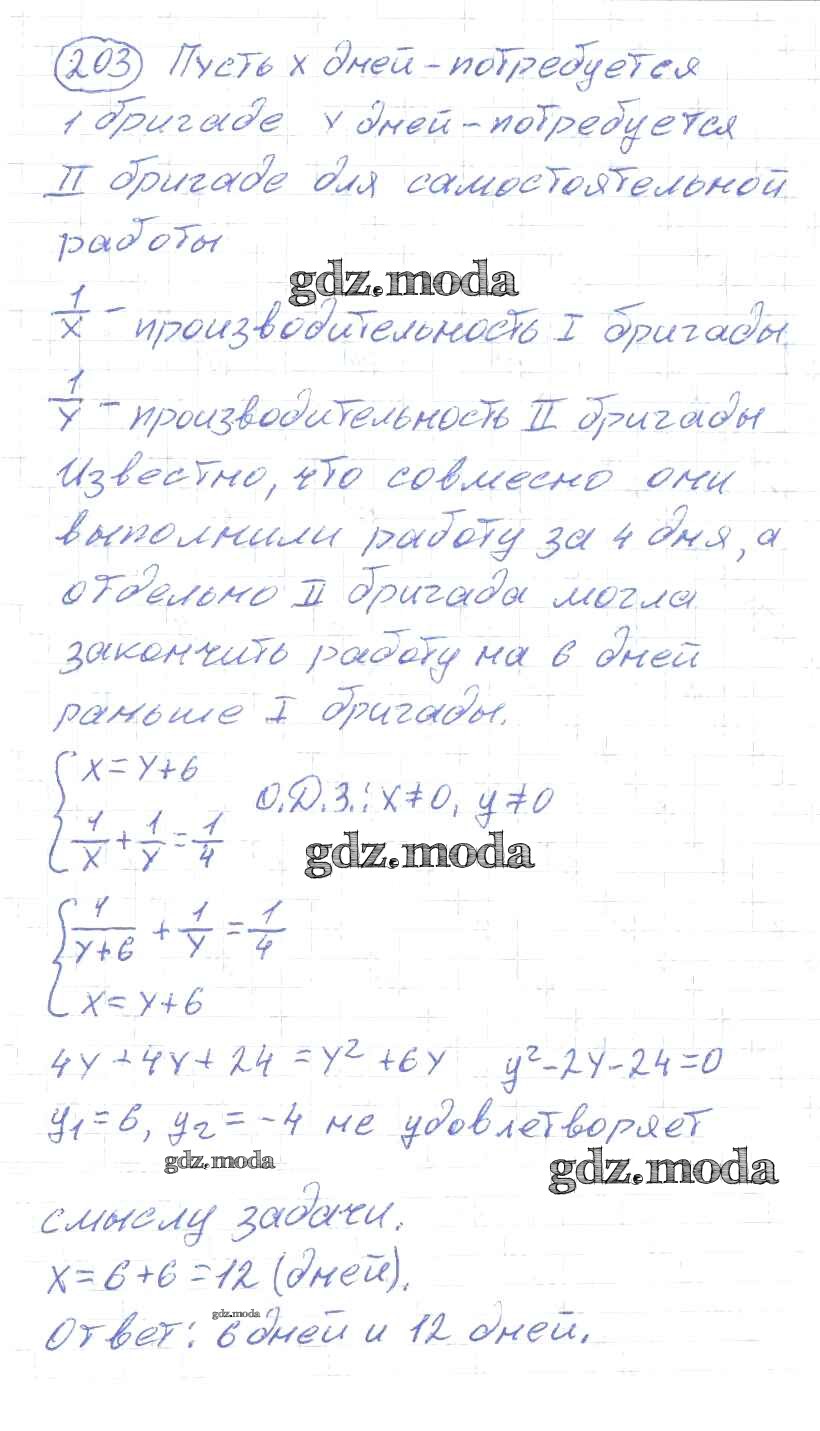 203 Пусть x дней – потребуется
1 бригаде y дней – потребуется
II бригаде для самостоятельной
работы
gdz.moda
1/x – производительность I бригады.
1/y – производительность II бригады
Известно, что совмесно они
выполнили работу за 4 дня, а
отдельно II бригада могла
закончить работу на 6 дней
раньше I бригады.
{ x = y + 6
1/x + 1/y = 1/4 О.Д.З.: x ≠ 0, y ≠ 0
gdz.moda
{ 1/(y+6) + 1/y = 1/4
x = y + 6
4y + 4y + 24 = y² + 6y y² - 2y - 24 = 0
y₁ = 6, y₂ = -4 не удовлетворяет
gdz.moda gdz.moda
смыслу задачи.
x = 6 + 6 = 12 (дней).
gdz.moda
Ответ: 6 дней и 12 дней.